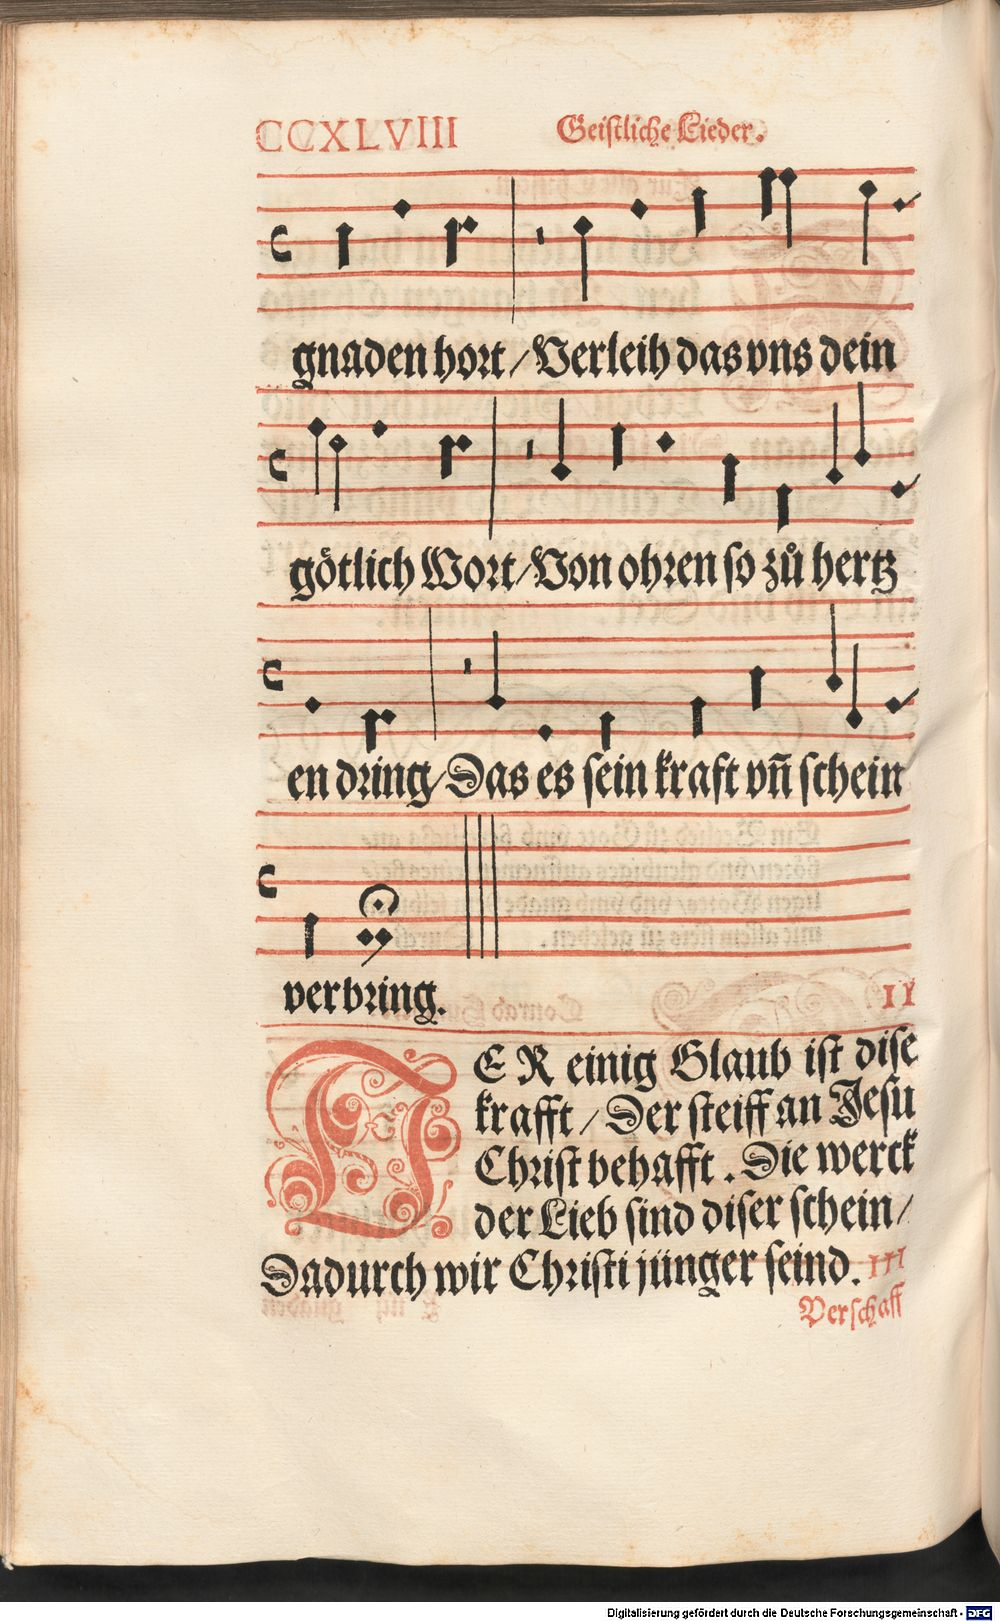 CCXLVIII Geistliche Lieder.
gnaden hort / Verleih das vns dein
götlich Wort / Von ohren so zů hertz
en dring / Das es sein kraft vñ schein
verbring.
II
DER einig Glaub ist dise
krafft / Der steiff an Jesu
Christ behafft. Die werck
der Lieb sind diser schein /
Dadurch wir Christi jünger seind. III
Verschaff
Digitalisierung gefördert durch die Deutsche Forschungsgemeinschaft - DFG